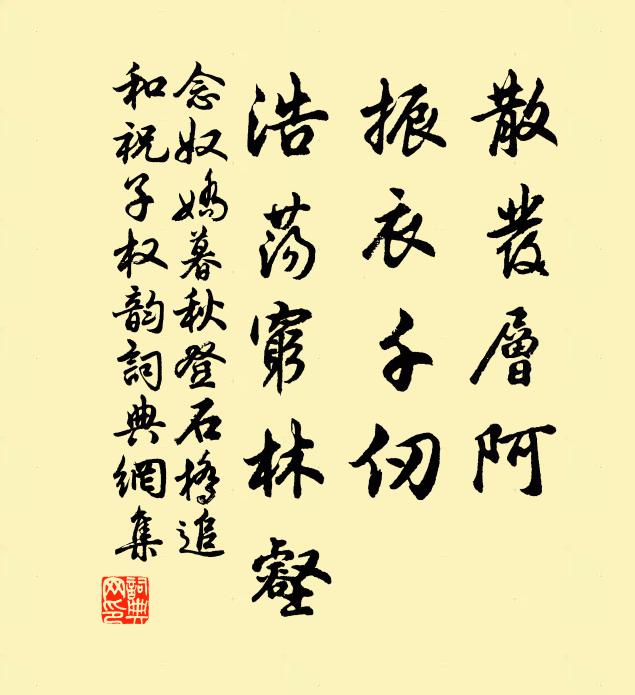 散發層阿
振衣千仞
浩蕩窮林壑
念奴嬌暮秋登石橋追
和祝子权韵詞典網集
詞典网印